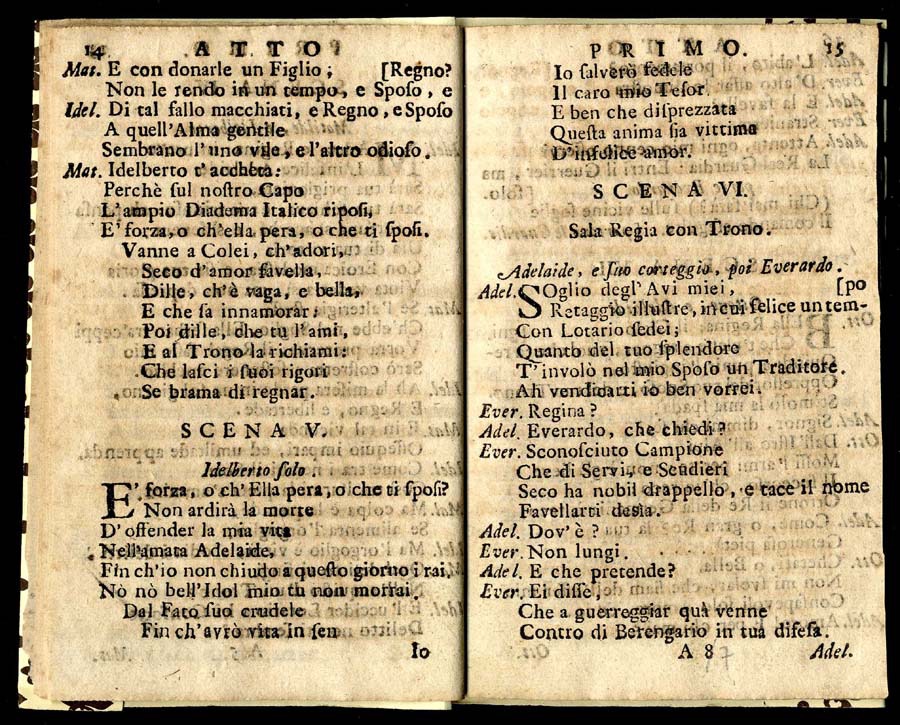 14 ATTO
Mat. E con donarle un Figlio; [Regno?
Non le rendo in un tempo, e Sposo, e
Idel. Di tal fallo macchiati, e Regno, e Sposo
A quell'Alma gentile
Sembrano l'uno vile, e l'altro odioso.
Mat. Idelberto t'accheta:
Perchè sul nostro Capo
L'ampio Diadema Italico riposi,
E' forza, o ch'ella pera, o che ti sposi.
Vanne a Colei, ch'adori,
Seco d'amor favella,
Dille, ch'è vaga, e bella,
E che fa innamorar:
Poi dille, che tu l'ami,
E al Trono la richiami:
Che lasci i suoi rigori
Se brama di regnar.
SCENA V.
Idelberto solo
E' forza, o ch'Ella pera, o che ti sposi?
Non ardirà la morte
D'offender la mia vita
Nell'amata Adelaide,
Fin ch'io non chiudo a questo giorno i rai.
Nò nò bell'Idol mio tu non morrai.
Dal Fato suo crudele
Fin ch'avrò vita in sen
Io
PRIMO. 15
Io salverò fedele
Il caro mio Tesor.
E ben che disprezzata
Questa anima sia vittima
D'infelice amor.
SCENA VI.
Sala Regia con Trono.
Adelaide, e suo corteggio, poi Everardo.
Adel. SOglio degl'Avi miei, [po
Retaggio illustre, in cui felice un tem-
Con Lotario sedei;
Quanto del tuo splendore
T'involò nel mio Sposo un Traditore.
Ah vendicarti io ben vorrei.
Ever. Regina?
Adel. Everardo, che chiedi?
Ever. Sconosciuto Campione
Che di Servi, e Scudieri
Seco ha nobil drappello, e tace il nome
Favellarti desia.
Adel. Dov'è?
Ever. Non lungi.
Adel. E che pretende?
Ever. Ei disse,
Che a guerreggiar quà venne
Contro di Berengario in tua difesa.
A 8 Adel.